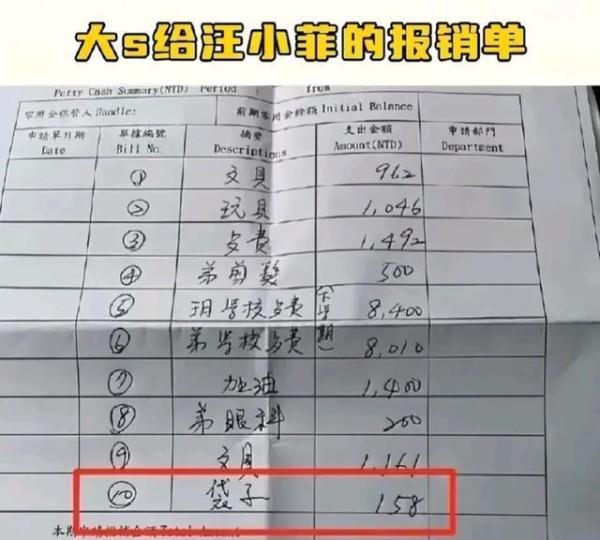 大s给汪小菲的报销单
Petty Cash Summary(NTD) Period : from
零用金保管人 Handle: 前期零用金餘額 Initial Balance
申請單日期 單據編號 摘要 支出金額 申請部門
Date Bill No. Descriptions Amount(NTD) Department
① 文具 962
② 玩具 1,046
③ 餐費 1,492
④ 弟剪髮 500
⑤ 玥學校餐費(下學期) 8,400
⑥ 弟學校餐費 8,010
⑦ 加油 1,400
⑧ 弟眼科 200
⑨ 文具 1,161
⑩ 袋子 158
Total Amount